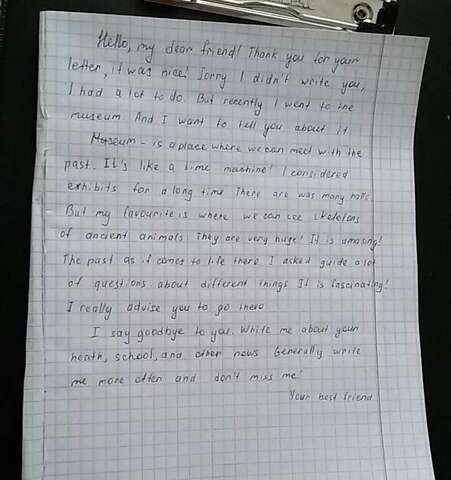 Hello, my dear friend! Thank you for your
letter, it was nice! Sorry I didn't write you,
I had a lot to do. But recently I went to the
museum And I want to tell you about it
Museum - is a place where we can meet with the
past. It's like a time machine! I considered
exhibits for a long time There are was many halls.
But my favourite is where we can see skeletons
of ancient animals They are very huge! It is amazing!
The past as if comes to life there I asked guide a lot
of questions about different things It is fascinating!
I really advise you to go there
I say goodbye to you. Write me about your
heath, school, and other news Generally write
me more often and don't miss me!
Your best friend